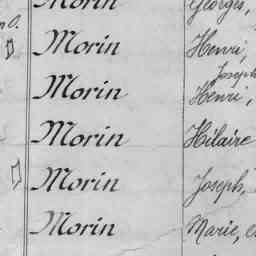 Morin Georges,
Morin Henri,
Joseph
Morin Henri,
Morin Hilaire
Morin Joseph,
Morin Marie,